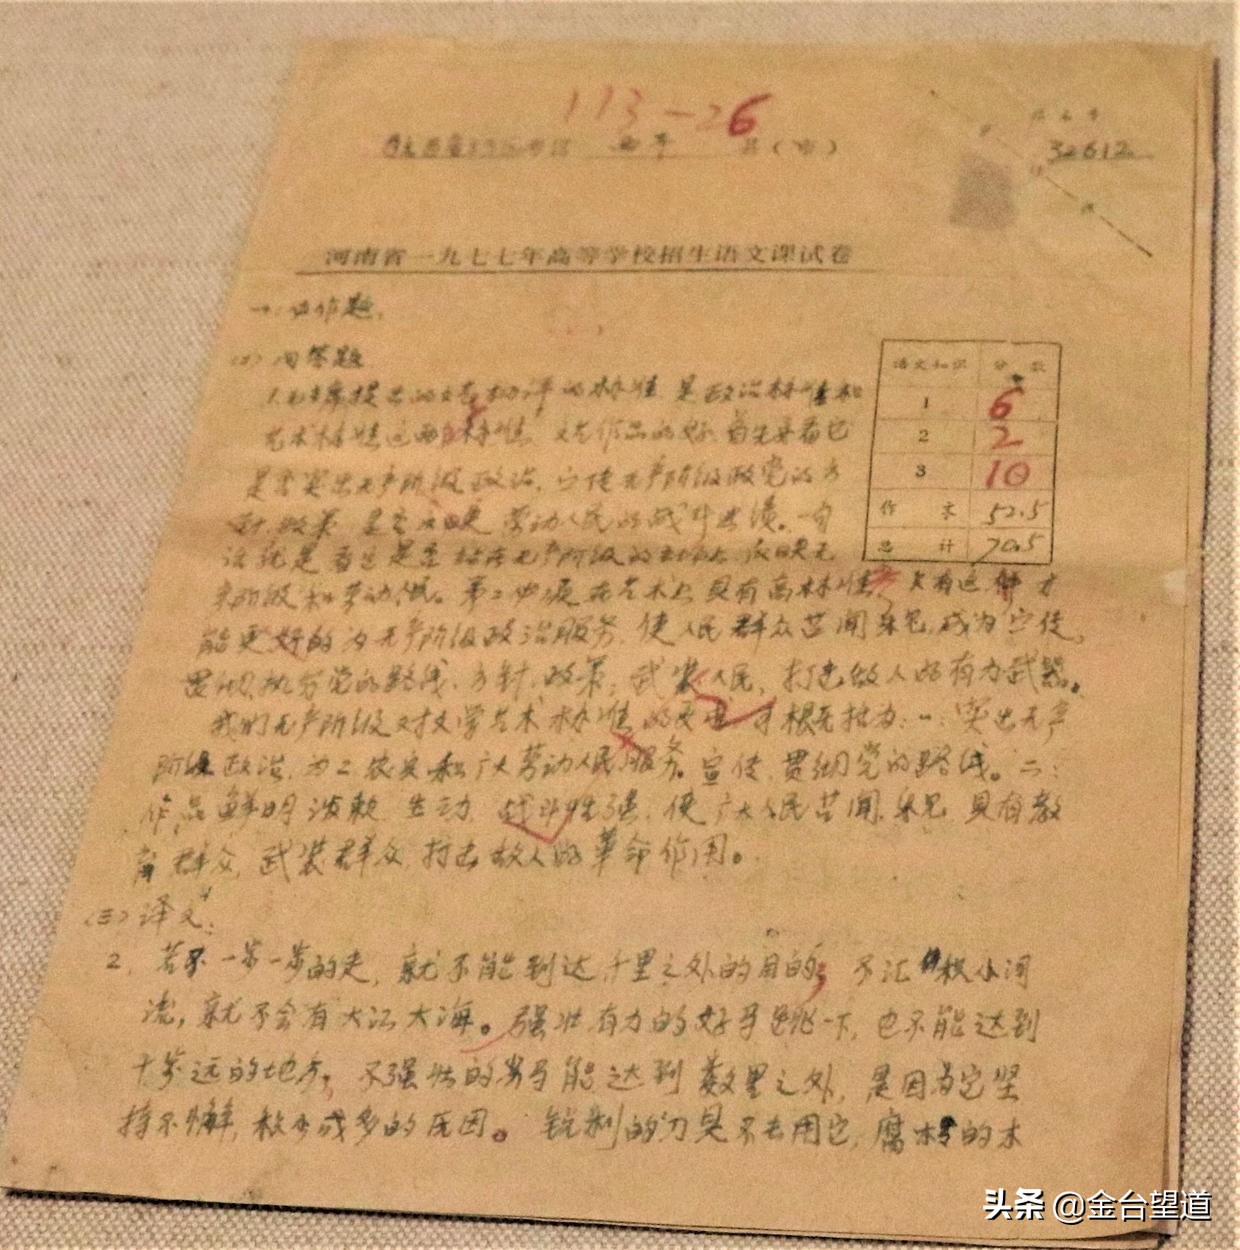 113-26
西平 县（市）
32612
河南省一九七七年高等学校招生语文课试卷
一：
(2) 问答题
语文知识 分数
1 6
2 2
3 10
作文 52.5
总计 70.5
1.毛主席提出的文艺批评的标准是政治标准和
艺术标准这两标准。文艺作品的好首先要看它
是否突出无产阶级政治，宣传无产阶级政党的方
针政策，是否反映劳动人民的战斗业绩。一句
话就是首先是否站在无产阶级的反映无
产阶级和劳动。第二必须在艺术上具有高标准，只有这样才
能更好的为无产阶级政治服务，使人民群众喜闻乐见，成为宣传，
贯彻，执行党的路线、方针、政策，武装人民，打击敌人的有力武器。
我们无产阶级对文学艺术标准的要求可概括为：一：突出无产
阶级政治，为工农兵和广大劳动人民服务。宣传，贯彻党的路线。二：
作品鲜明活泼，生动，战斗性强，使广大人民喜闻乐见，具有教
育群众，武装群众，打击敌人的革命作用。
(三) 译文：
2. 若不一步一步的走，就不能到达千里之外的目的；不汇积小河
流，就不会有大江大海。强壮有力的好马跳一下，也不能达到
十步远的地方，不强壮的劣马能达到数里之外，是因为它坚
持不懈，积少成多的原因。锐利的刀具不去用它，腐朽的木
头条 @金台望道